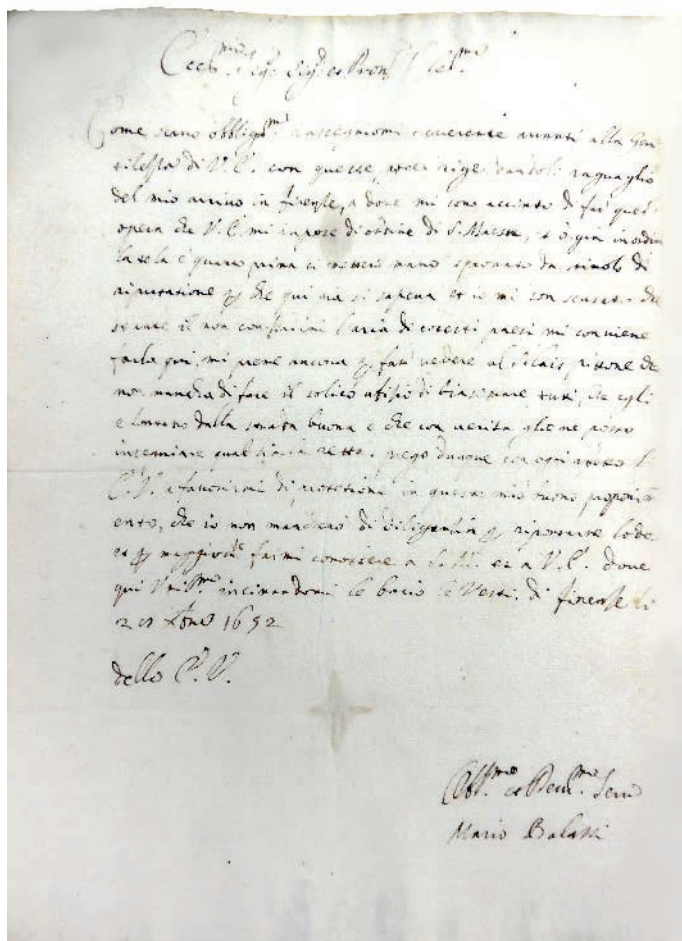 Ecc.mo Sig.r Sig.r et Pron
Come sono obblig.mo reverente avanti alla Gen
tilessa di V.E. con queste, raguaglio
del mio arrivo in firenze, a dove mi sono accinto di far quel
opera che V.E. mi impose di ordine di S. Maestà, et ò già in ordin
la tela e quanto prima ci metterò mano spronato da stimoli di
riputatione che qui già si sapeva et io mi son scusato che
stante il non confarmi l'aria di cotesti paesi mi conviene
farla qui, mi preme ancora far vedere al pittore che
non mancha di fare il solito ufitio di biasimare tutti, che egli
è lontano dalla strada buona e che con verità gliene posso
insegniare qual sia la retta. prego dunque con ogni
E.V. a favorirmi di protetione in questo mio buono proponim
ento, che io non mancherò di diligentia riportare lode
et farmi conoscere a S.M. et a V.E. dove
qui inchinandomi le bacio le Vesti. di firenze li
1652
dello E.V.
Obb.mo et Dev.mo Serv
Mario Balassi